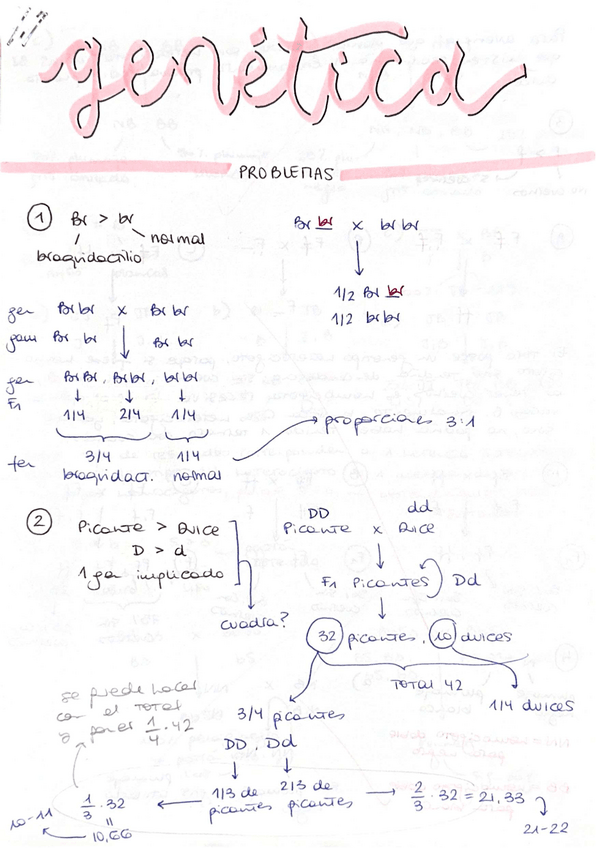 genética
PROBLEMAS
1 Br > br
normal
braquidactilio
Br br x br br
1/2 Br br
1/2 br br
gen Br br x Br br
gam Br br Br br
gen Br Br, Br br, br br
F1 1/4 2/4 1/4
3/4 1/4
fen braquidact. normal
proporciones 3:1
2 Picante > Dulce
D > d
1 gen implicado
cuadra?
DD dd
Picante x Dulce
F1 Picantes Dd
32 picantes, 10 dulces
TOTAL 42
3/4 picantes
1/4 dulces
DD, Dd
1/3 de 2/3 de
picantes picantes
2/3 · 32 = 21,33
21-22
1/3 · 32
10,66
10-11
se puede hacer
con el TOTAL
y poner 1/4 · 42